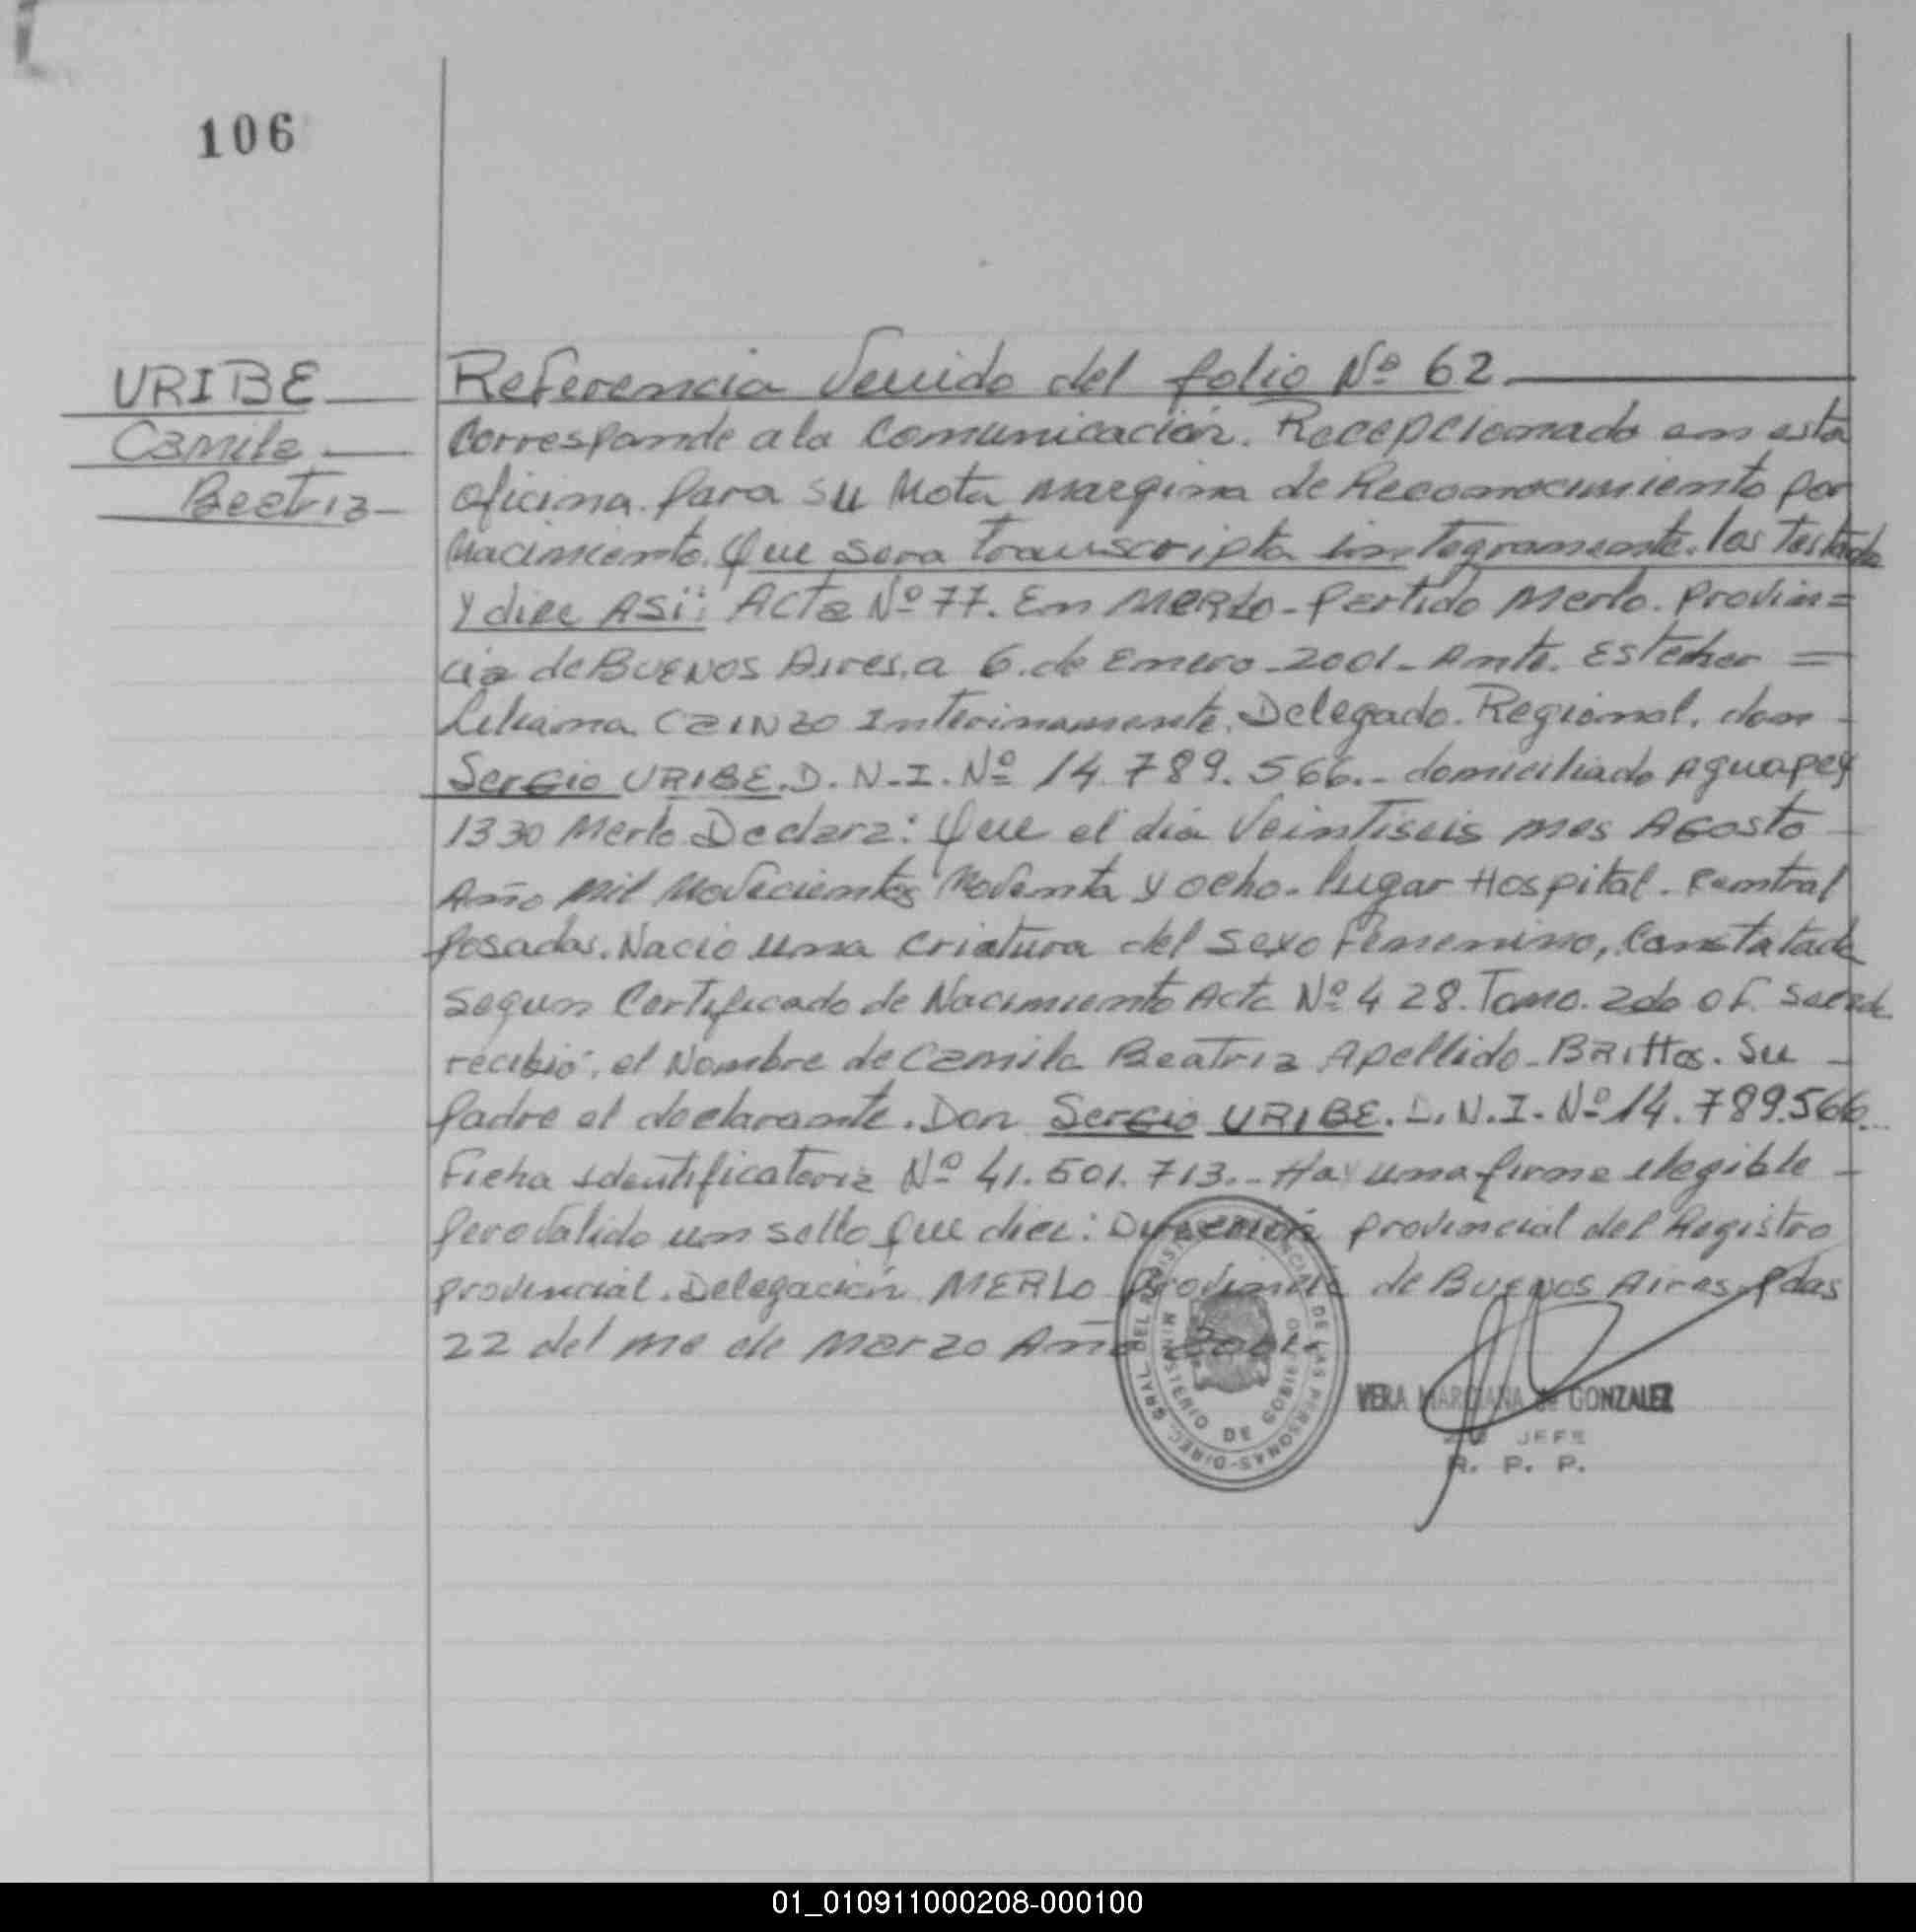 106
URIBE
Camila
Beatriz
Referencia Venido del folio Nº 62
Corresponde a la Comunicación. Recepcionado en esta
oficina. Para su Nota Margina de Reconocimiento por
Nacimiento. Que sera transcripta integramente. las Testado
y dice ASi: Acta Nº 77. En MERLO - Partido Merlo. Provin=
cia de BUENOS Aires, a 6. de Enero - 2001 - Ante. Estecher =
Liliana CAINZO Interinamente. Delegado. Regional. don -
Sergio URIBE. D. N. I. Nº 14.789.566.- domiciliado Aguapey
1330 Merlo Declara: Que el dia Veintiseis mes Agosto
Año Mil Novecientos Noventa y ocho. lugar Hospital. Central
Posadas. Nacio una criatura del sexo Femenino, Constatada
segun Certificado de Nacimiento Acta Nº 428. Tomo. 2do of.
recibio: el Nombre de Camila Beatriz Apellido - BRittos. Su -
Padre el declarante. Don Sergio URIBE. D. N. I. Nº 14.789.566..
Ficha Identificatoria Nº 41.501.713.- Hay una firma ilegible -
pero valido un sello que dice: Dirección provincial del Registro
provincial. Delegación MERLO Provincia de Buenos Aires Pdas
22 del me de Marzo Año 2001.
DIREC. GRAL. DEL REGIST. PROVINCIAL DE LAS PERSONAS
MINISTERIO DE GOBIERNO
VERA MARCIANA de GONZALEZ
JEFE
R. P. P.
01_010911000208-000100